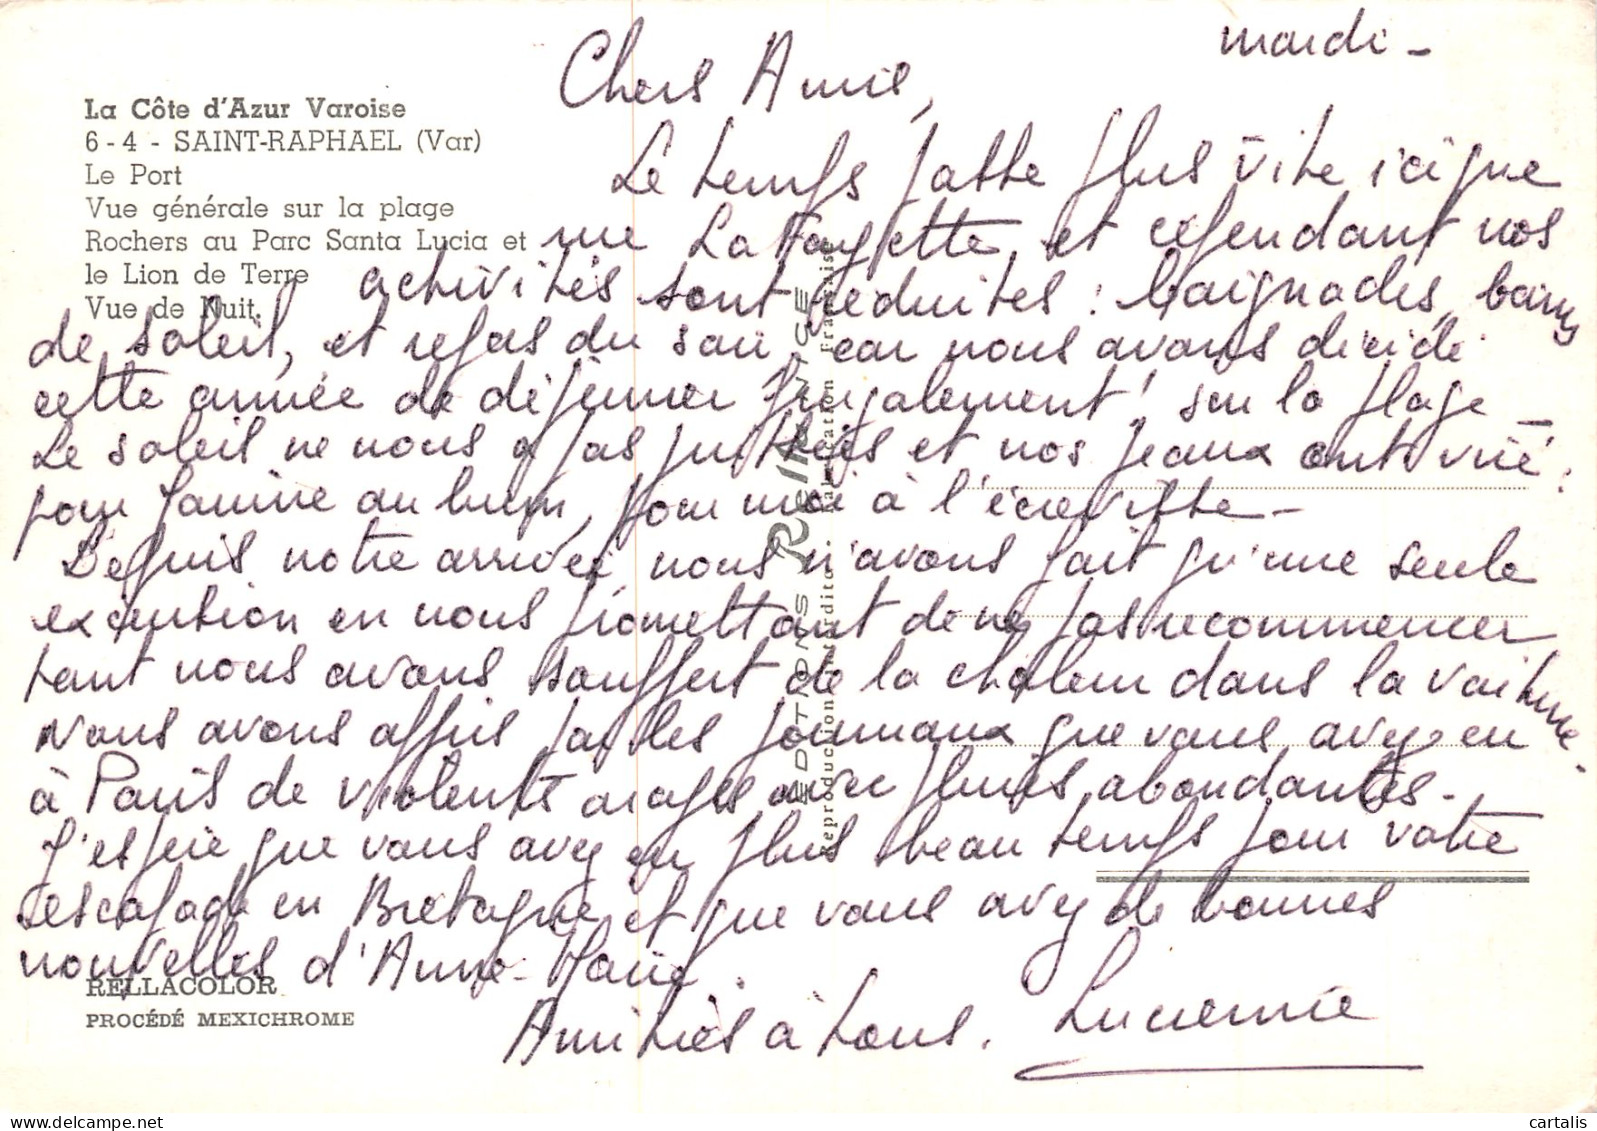 La Côte d'Azur Varoise
6-4 - SAINT-RAPHAEL (Var)
Le Port
Vue générale sur la plage
Rochers au Parc Santa Lucia et
le Lion de Terre
Vue de Nuit.
mardi -
Chers Amis,
Le temps passe plus vite ici que
rue La Fayette, et cependant nos
activités sont réduites : baignades, bains
de soleil, et repas du soir, car nous avons décidé
cette année de déjeuner frugalement ! sur la plage -
Le soleil ne nous a pas et nos peaux ont viré :
pour Janine au brun, pour moi à l'écrevisse -
Depuis notre arrivée, nous n'avons fait qu'une seule
excursion en nous promettant de ne pas recommencer
tant nous avons souffert de la chaleur dans la voiture.
Nous avons appris par les journaux que vous avez eu
à Paris de violents orages avec pluies abondantes -
J'espère que vous avez eu plus beau temps pour votre
escapade en Bretagne, et que vous avez de bonnes
nouvelles d'Anne-Marie.
Amitiés à tous. Lucienne
EDITIONS RELLA NICE
Reproduction interdite. Fabrication Française
RELLACOLOR
PROCÉDÉ MEXICHROME
cartalis